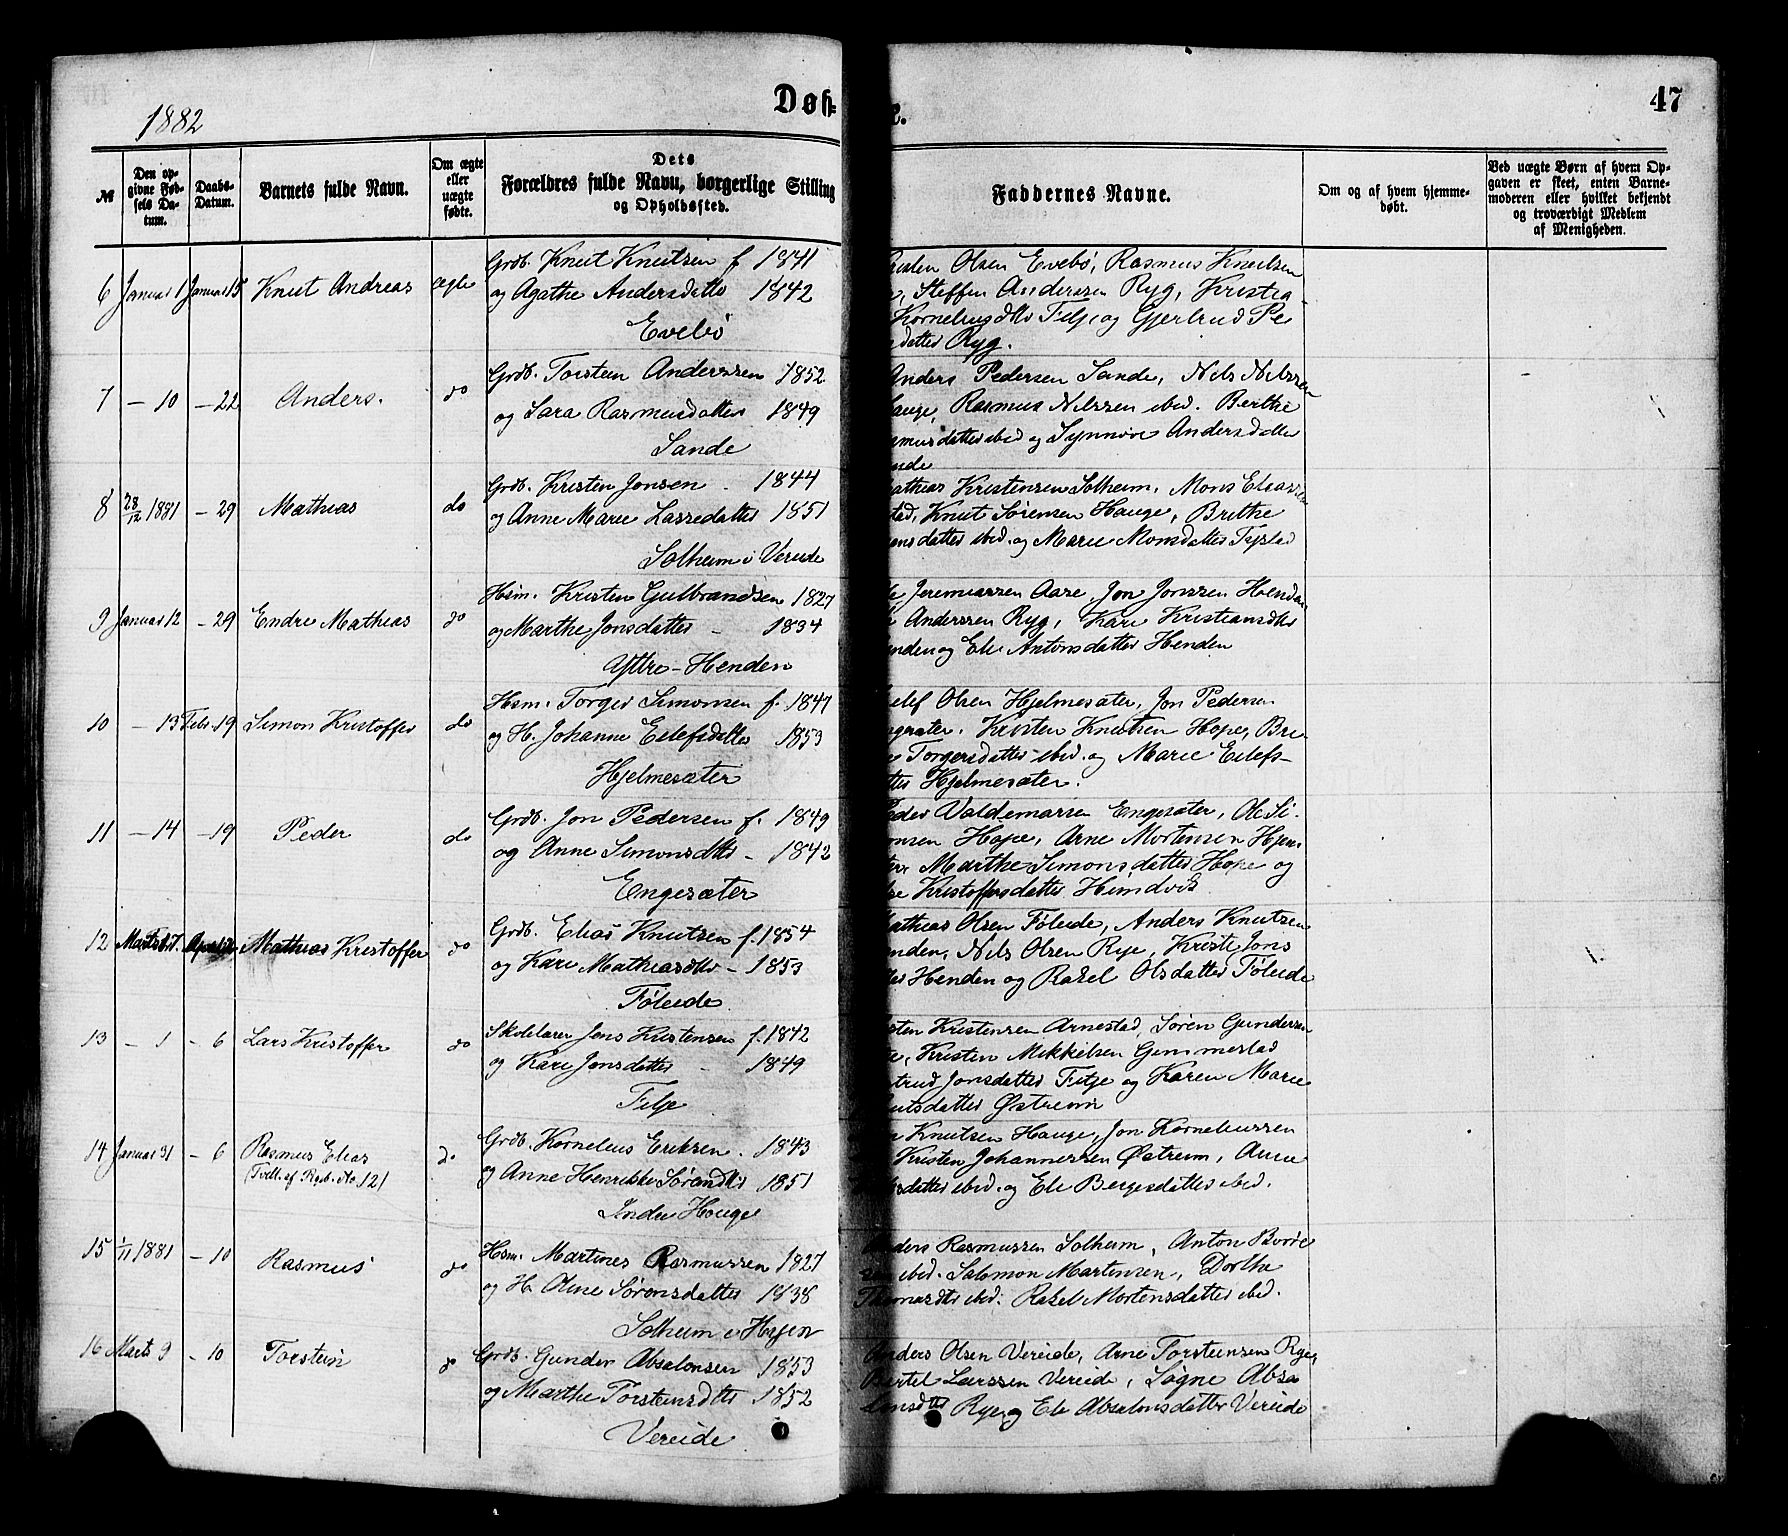 1882
Døb-
47
№
Den op-
givne Fød-
sels Da-
tum.
Daabs-
Datum.
Barnets fulde Navn.
Om ægte
eller
uægte
fødte.
Dets
Forældres fulde Navn, borgerlige Stilling
og Opholdssted.
Faddernes Navne.
Om og af hvem hjemme-
døbt.
Ved uægte Børn af hvem Op-
gaven er skeet, enten Barne-
moderen eller hvilket bekjendt
og troværdigt Medlem
af Menigheden.
6 Januar 1 Januar 15 Knut Andreas ægte
Grdb. Knut Knutsen f 1841
og Agathe Andersdatter 1842
Evebø
Olsen Evebø, Rasmus Knutsen
Steffen Anderssen Ryg, Kristia-
Korneliusdtr Fetje og Gjertrud Pe
datter Ryg.
7 — 10 — 22 Anders. do
Grdb. Torstein Anderssen 1852
og Sara Rasmusdatter 1849
Sande
Anders Pedersen Sande, Nils Nilssen
Hauge, Rasmus Nilssen ibid. Berthe
datter ibid og Synnøve Andersdatter
8 28/12 1881 — 29 Mathias do
Grdb. Kristen Jonsen 1844
og Anne Marie Lassedatter 1851
Solheim i Vereide
Mathias Kristensen Solheim, Mons Eliassen
Knut Sørensen Hauge, Brithe
datter ibid. og Marie Monsdatter Tystad
9 Januar 12 — 29 Endre Mathias do
Hsm. Kristen Gulbrandsen 1827
og Marthe Jonsdatter — 1834
Yttre-Henden
Jeremiassen Aare, Jon Jonssen Henden
Anderssen Ryg, Kari Kristiansdtr
Henden og Eli Antonsdatter Henden
10 — 13 Febr. 19 Simon Kristoffer do
Hsm. Torger Simonsen f. 1847
og H. Johanne Eilefsdatter 1853
Hjelmesæter
Olsen Hjelmesæter, Jon Pedersen
Kristen Knutsen Hope, Bri-
Torgersdatter ibid. og Marie Eilefs-
Hjelmesæter.
11 — 14 — 19 Peder do
Grdb. Jon Pedersen f. 1849
og Anne Simonsdtr — 1842
Engesæter
Peder Valdemarsen Engesæter, Ole Si-
monsen Hope, Arne Mortensen Hjem-
Marthe Simonsdatter Hope og
Kristoffersdatter Heimdvik
12 Mathias Kristoffer do
Grdb. Elias Knutsen f. 1854
og Kari Mathiasdtr — 1853
Føleide
Mathias Olsen Føleide, Anders Knutsen
Henden, Nils Olsen Rye, Kristi Jons
Henden og Rakel Olsdatter Føleide
13 — 1 — 6 Lars Kristoffer do
Skolelærer Jens Kristensen f. 1842
og Kari Jonsdatter — 1849
Fetje
Kristensen Arnestad, Søren Gundersen
Kristen Mikkelsen Gemmestad
Jonsdatter Fetje og Karen Marie
Knutsdatter Østreim
14 Januar 31 — 6 Rasmus Elias do
(Tvill. af Rgb. No 12)
Grdb. Kornelius Eriksen. 1843
og Anne Henrikke Sørandtr 1851
Indre Hauge
Knutsen Hauge, Jon Korneliussen
Kristen Johannessen Østreim, Anne
datter ibid. og Eli Bergesdatter ibid.
15 1/11 1881 — 10 Rasmus do
Hsm. Martines Rasmussen 1827
og H. Oline Sørensdatter 1838
Solheim i Hyen
Anders Rasmussen Solheim, Anton Børre
sen ibid. Salomon Martensen, Dorthe
Thomasdtr ibid. Rakel Mortensdatter ibid.
16 Marts 9 — 10 Torstein do
Grdb. Gunder Absalonsen 1853
og Marthe Torsteinsdtr 1852
Vereide
Anders Olsen Vereide, Arne Torsteinsen Rye,
Bertel Larssen Vereide, Søgne Absa
lonsdtr Rye og Eli Absalonsdatter Vereide